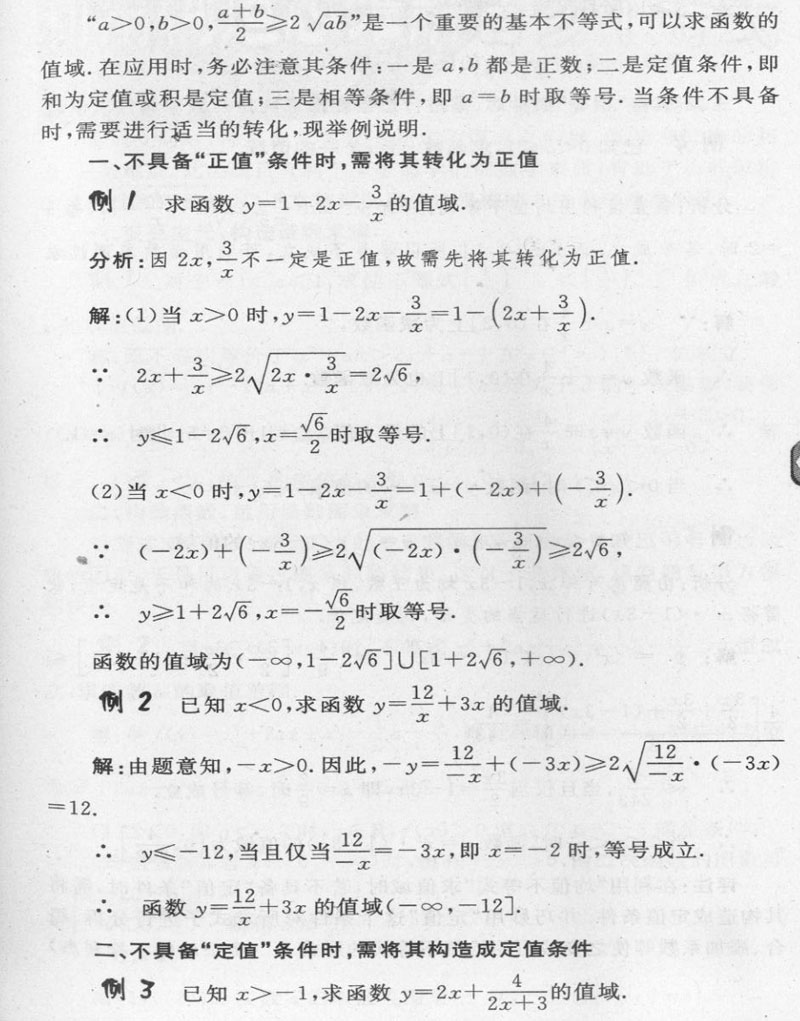 “a>0,b>0,$\frac{a+b}{2}$≥2$\sqrt{ab}$”是一个重要的基本不等式,可以求函数的
值域.在应用时,务必注意其条件:一是 a,b 都是正数;二是定值条件,即
和为定值或积是定值;三是相等条件,即 a=b 时取等号.当条件不具备
时,需要进行适当的转化,现举例说明.
一、不具备“正值”条件时,需将其转化为正值
例 1 求函数 y=1-2x-$\frac{3}{x}$的值域.
分析:因 2x,$\frac{3}{x}$不一定是正值,故需先将其转化为正值.
解:(1)当 x>0 时,y=1-2x-$\frac{3}{x}$=1-(2x+$\frac{3}{x}$).
∵ 2x+$\frac{3}{x}$≥2$\sqrt{2x·\frac{3}{x}}$=2$\sqrt{6}$,
∴ y≤1-2$\sqrt{6}$,x=$\frac{\sqrt{6}}{2}$时取等号.
(2)当 x<0 时,y=1-2x-$\frac{3}{x}$=1+(-2x)+(-$\frac{3}{x}$).
∵ (-2x)+(-$\frac{3}{x}$)≥2$\sqrt{(-2x)·(-\frac{3}{x})}$≥2$\sqrt{6}$,
∴ y≥1+2$\sqrt{6}$,x=-$\frac{\sqrt{6}}{2}$时取等号.
函数的值域为(-∞,1-2$\sqrt{6}$]∪[1+2$\sqrt{6}$,+∞).
例 2 已知 x<0,求函数 y=$\frac{12}{x}$+3x 的值域.
解:由题意知,-x>0.因此,-y=$\frac{12}{-x}$+(-3x)≥2$\sqrt{\frac{12}{-x}·(-3x)}$
=12.
∴ y≤-12,当且仅当$\frac{12}{-x}$=-3x,即 x=-2 时,等号成立.
∴ 函数 y=$\frac{12}{x}$+3x 的值域(-∞,-12].
二、不具备“定值”条件时,需将其构造成定值条件
例 3 已知 x>-1,求函数 y=2x+$\frac{4}{2x+3}$的值域.